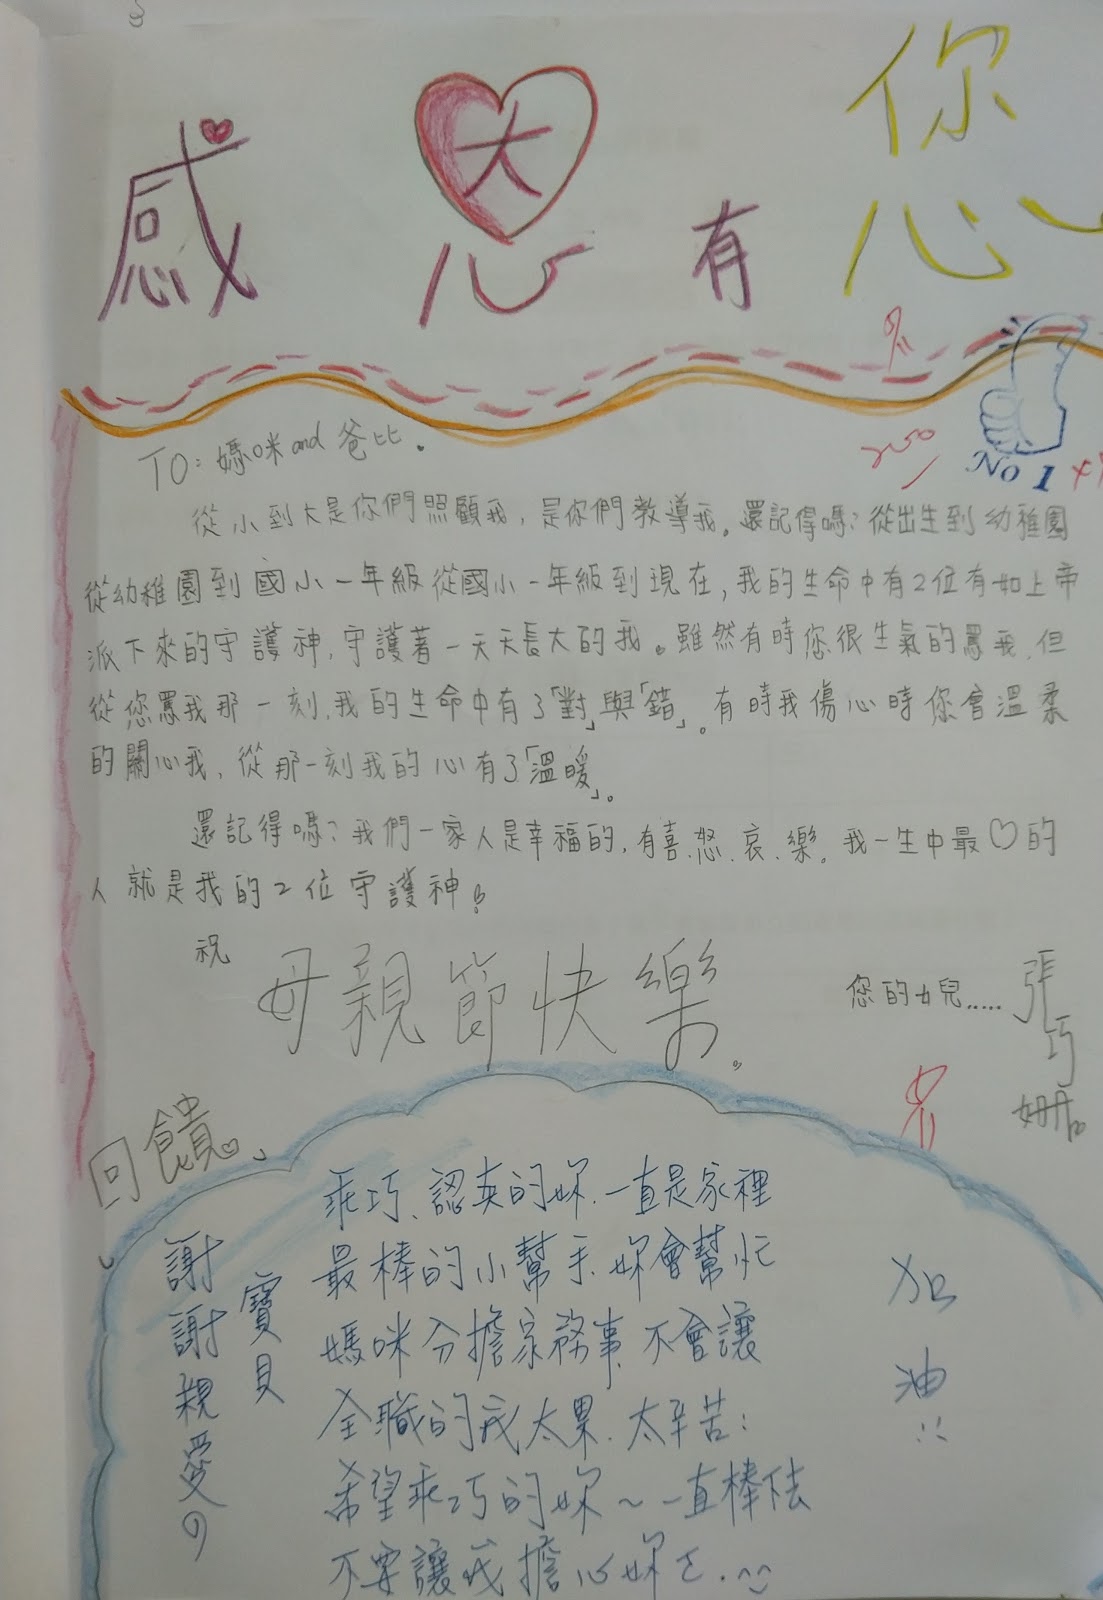 感恩有您
No 1
TO:媽咪and爸比。
從小到大是你們照顧我,是你們教導我。還記得嗎?從出生到幼稚園
從幼稚園到國小一年級從國小一年級到現在,我的生命中有2位有如上帝
派下來的守護神,守護著一天天長大的我。雖然有時您很生氣的罵我,但
從您罵我那一刻,我的生命中有了「對」與「錯」。有時我傷心時您會溫柔
的關心我,從那一刻我的心有了「溫暖」。
還記得嗎?我們一家人是幸福的,有喜、怒、哀、樂。我一生中最♡的
人就是我的2位守護神!
祝
母親節快樂。
您的女兒.....張巧
回饋
謝謝親愛的
寶貝
乖巧、認真的妳、一直是家裡
最棒的小幫手、妳會幫忙
媽咪分擔家務事、不會讓
全職的我太累、太辛苦:
希望乖巧的妳~一直棒下去
不要讓我擔心妳
加油